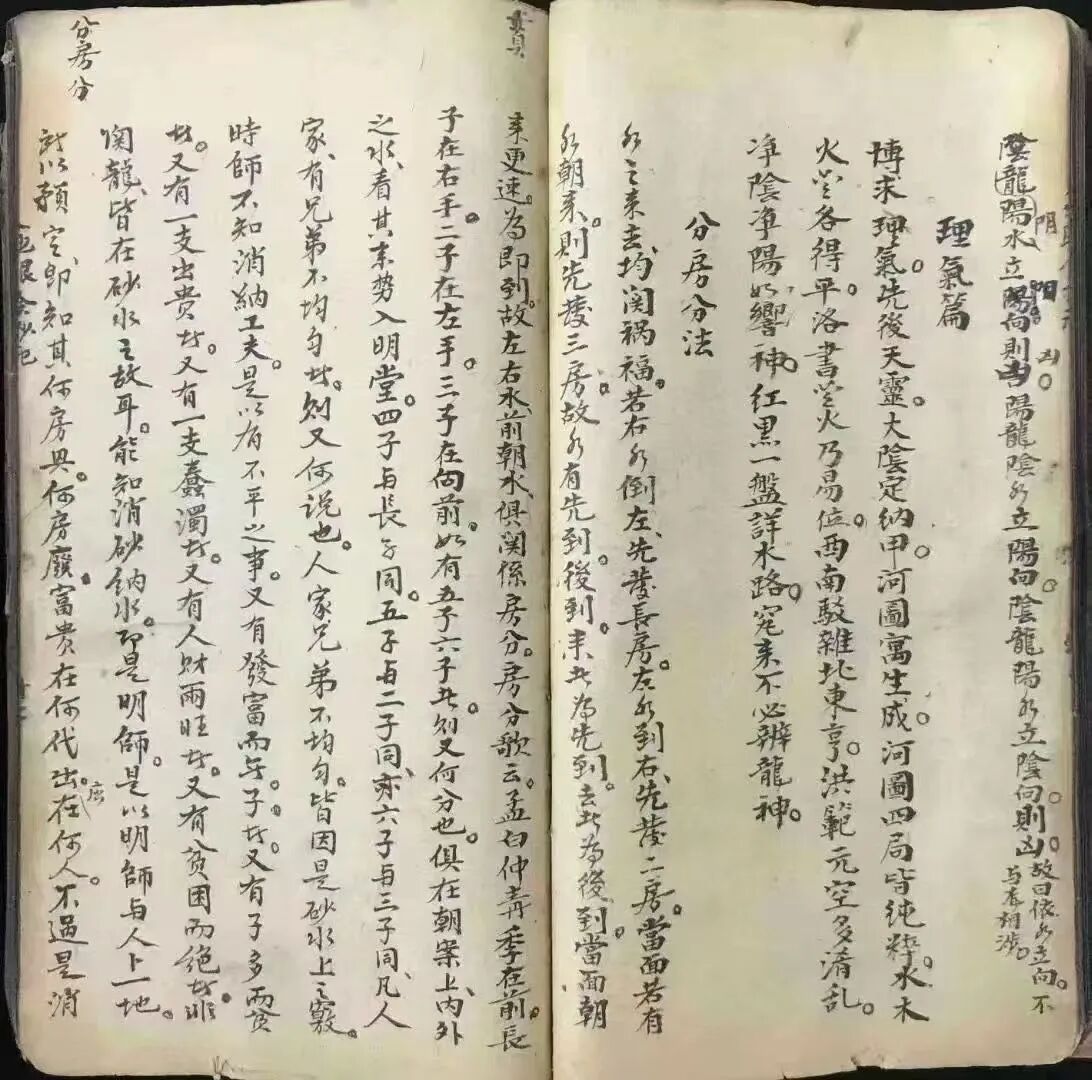 陰龍陽水立陽向則吉陽龍陰水立陽向陰龍陽水立陰向則凶。故曰依水立向。不
与本相涉。
阴
阳
凶。
理氣篇
博求理氣。先後天靈。大陰定納甲。河圖寓生成。河圖四局皆純粹。水木
火金各得平。洛書金火乃易位。西南駁雜北東亨。洪範元空多淆乱。
净陰净陽如響神。红黑一盤詳水路。究来不必辨龍神。
分房分法
水之来去、均関禍福。若右水倒左、先發長房。左水到右、先發二房。當面若有
水朝来。則先發三房。故水有先到。後到。来者為先到。去者為後到。當面朝
来更速。為即到。故左右水、前朝水、俱関係房分。房分歌云。孟白仲青季在前。長
子在右手。二子在左手。三子在向前。如有五子六子者、则又何分也。俱在朝案上、内外
之水、看其来势入明堂。四子与長子同。五子与二子同、亦六子与三子同、凡人
家、有兄弟不均匀者。则又何说也。人家兄弟不均匀。皆因是砂水上之敫。
時師不知消納工夫。是以有不平之事。又有發富而無子者。又有子多而贫
者。又有一支出贵者。又有一支蠢濁者。又有人财兩旺者。又有贫困而绝者。非
関龍、皆在砂水之故耳。能知消砂納水。即是明師。是以明師与人卜一地。
就以預定、即知其何房興。何房廢。富貴在何代。出在何人。不過是消
應
分房分